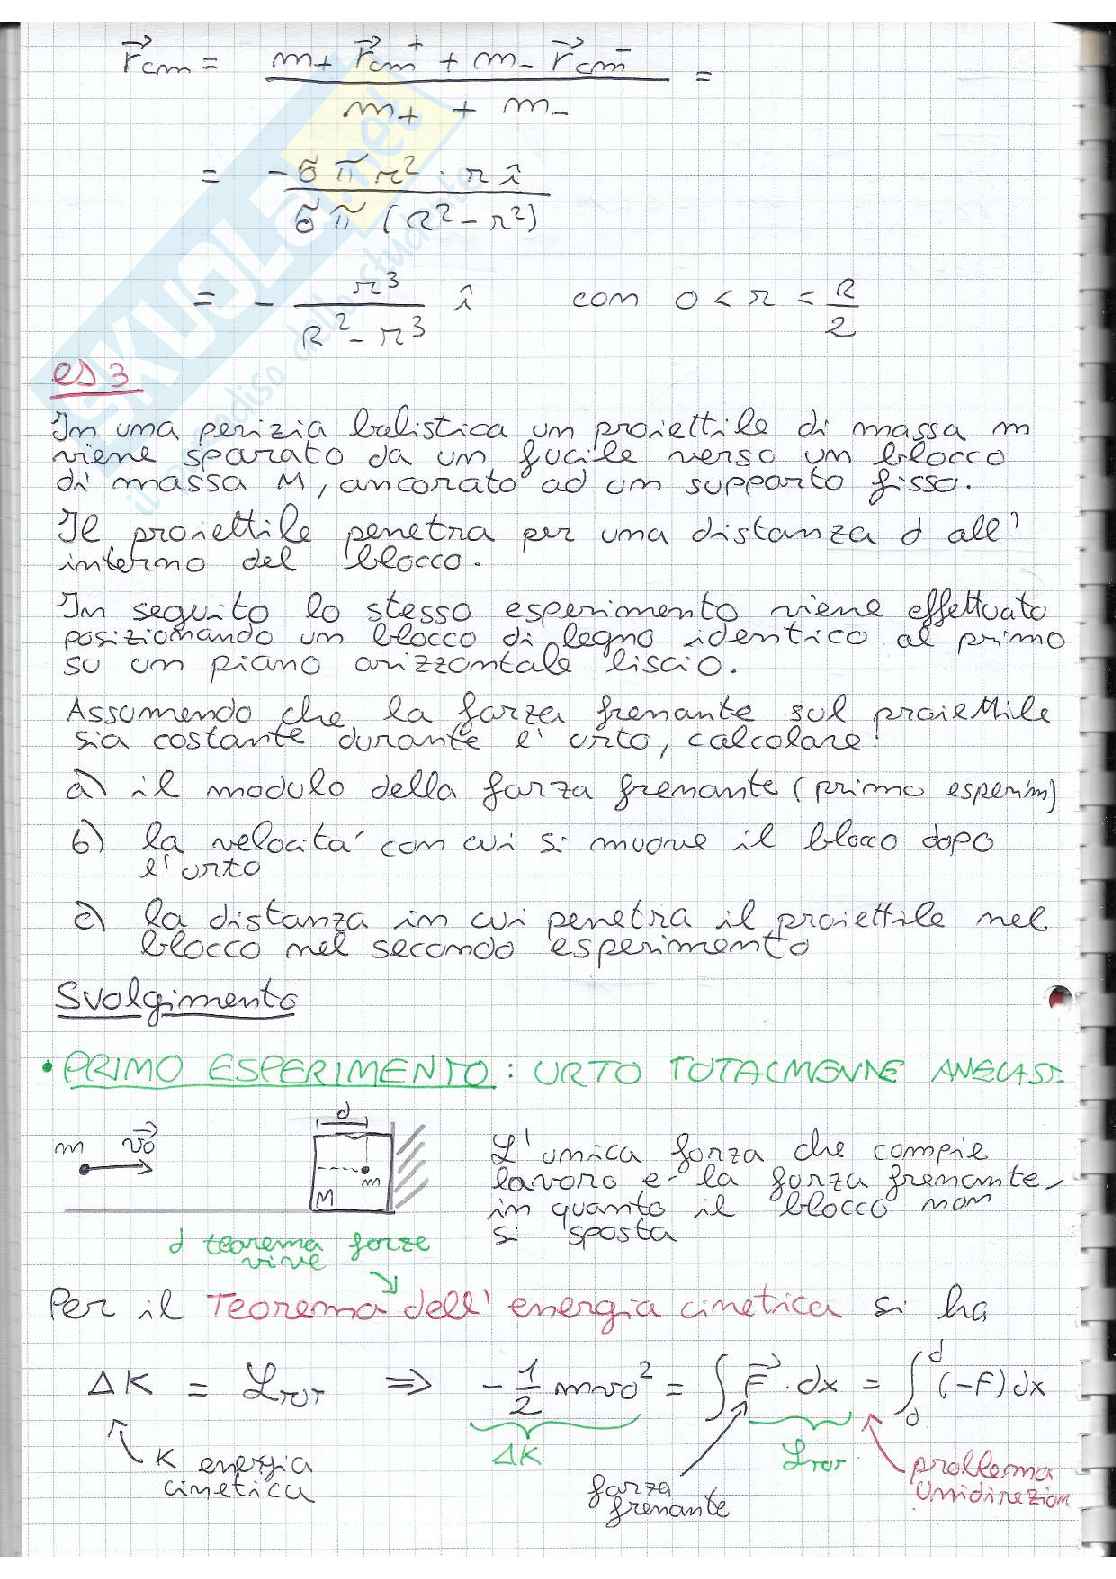 r⃗cm = m₊ r⃗cm⁺ + m₋ r⃗cm⁻ =
m₊ + m₋
= -σ π r² · r î
σ π (R² - r²)
= - r³ î con 0 < r = R
R² - r³ 2
es 3
In una perizia balistica un proiettile di massa m
viene sparato da un fucile verso un blocco
di massa M, ancorato ad un supporto fisso.
Il proiettile penetra per una distanza d all'
interno del blocco.
In seguito lo stesso esperimento viene effettuato
posizionando un blocco di legno identico al primo
su un piano orizzontale liscio.
Assumendo che la forza frenante sul proiettile
sia costante durante l'urto, calcolare:
a) il modulo della forza frenante (primo esperim)
b) la velocita' con cui si muove il blocco dopo
l'urto
c) la distanza in cui penetra il proiettile nel
blocco nel secondo esperimento
Svolgimento
• PRIMO ESPERIMENTO: URTO TOTALMENTE ANELAST.
d
m v⃗0
m
M
L'unica forza che compie
lavoro e' la forza frenante,
in quanto il blocco non
si sposta
d teorema forze
vive
Per il Teorema dell'energia cinetica si ha
ΔK = LTOT ⇒ - 1/2 mv0² = ∫ F⃗ · dx = ∫₀ᵈ (-F) dx
K energia
cinetica
ΔK
forza
frenante
LTOT
problema
Unidirezion